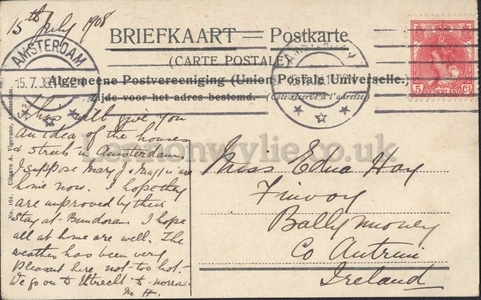 15th July 1908
BRIEFKAART = Postkarte
(CARTE POSTALE)
AMSTERDAM
Algemeene Postvereeniging (Union Postale Universelle.)
Zijde voor het adres bestemd. (Côté réservé à l'adresse)
5 CT
This will give you
an idea of the houses
& streets in Amsterdam.
I suppose Mary J & Maggie are
home now. I hope they
are improved by their
stay at Bundoran. I hope
all at home are well. The
weather has been very
pleasant here, not too hot.
We go on to Utrecht to-morrow
M. H.
Miss Edna Hoy
Finvoy
Ballymoney
Co Antrim
Ireland
No. 104. Uitgave A. Vigevano, Amsterdam
lennonwylie.co.uk